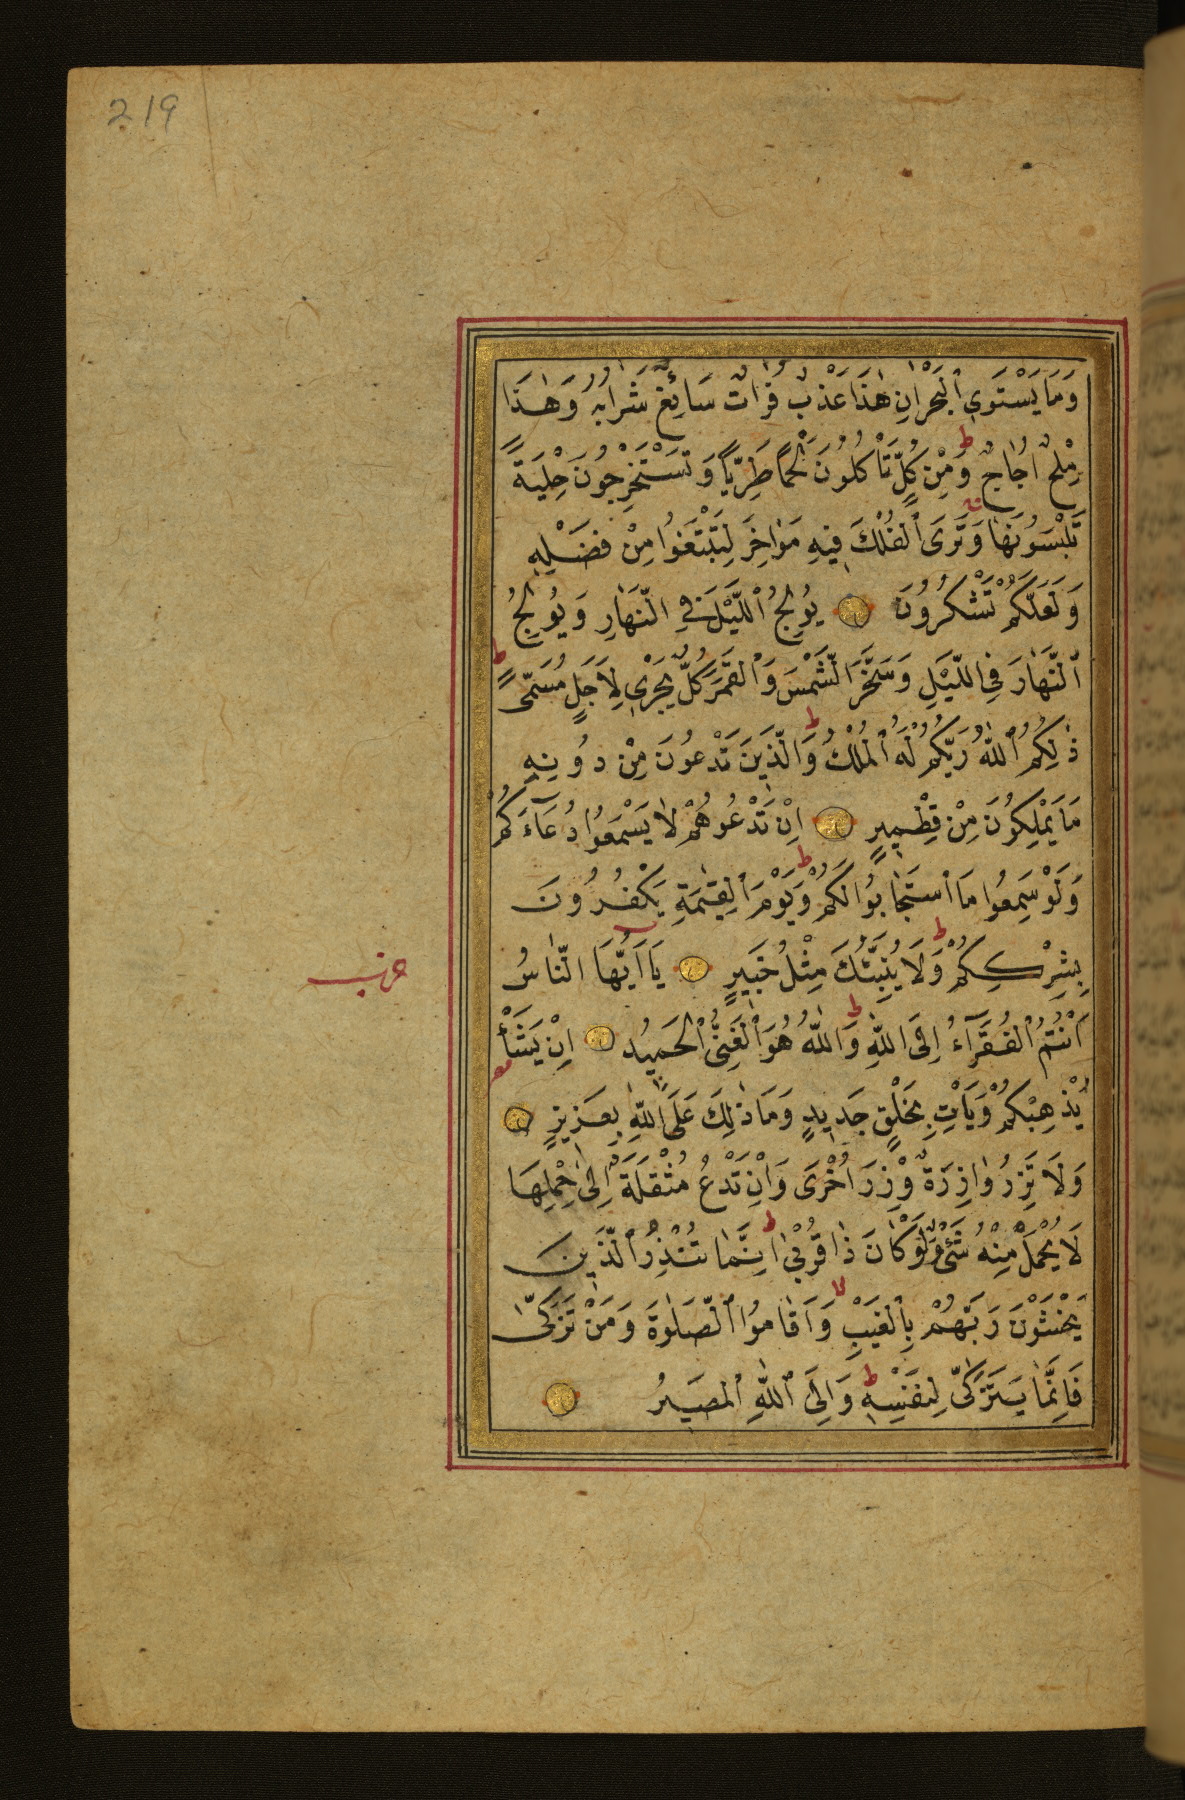 219
وَمَا يَسْتَوِي ٱلْبَحْرَانِ هٰذَا عَذْبٌ فُرَاتٌ سَائِغٌ شَرَابُهُ وَهٰذَا
مِلْحٌ اُجَاجٌ ط وَمِنْ كُلٍّ تَأْكُلُونَ لَحْمًا طَرِيًّا وَتَسْتَخْرِجُونَ حِلْيَةً
تَلْبَسُونَهَا وَتَرَى ٱلْفُلْكَ فِيهِ مَوَاخِرَ لِتَبْتَغُوا مِنْ فَضْلِهِ
وَلَعَلَّكُمْ تَشْكُرُونَ يُولِجُ ٱللَّيْلَ فِي النَّهَارِ وَيُولِجُ
ٱلنَّهَارَ فِي اللَّيْلِ وَسَخَّرَ الشَّمْسَ وَٱلْقَمَرَ كُلٌّ يَجْرِي لِاَجَلٍ مُسَمًّى ط
ذٰلِكُمُ ٱللّٰهُ رَبُّكُمْ لَهُ ٱلْمُلْكُ ط وَالَّذِينَ تَدْعُونَ مِنْ دُونِهِ
مَا يَمْلِكُونَ مِنْ قِطْمِيرٍ اِنْ تَدْعُوهُمْ لَا يَسْمَعُوا دُعَآءَكُمْ
وَلَوْ سَمِعُوا مَا ٱسْتَجَابُوا لَكُمْ ط وَيَوْمَ ٱلْقِيٰمَةِ يَكْفُرُونَ
بِشِرْكِكُمْ ط وَلَا يُنَبِّئُكَ مِثْلُ خَبِيرٍ يَا اَيُّهَا النَّاسُ
حزب
اَنْتُمُ ٱلْفُقَرَآءُ اِلَى اللّٰهِ ط وَاللّٰهُ هُوَ ٱلْغَنِيُّ ٱلْحَمِيدُ اِنْ يَشَأْ
يُذْهِبْكُمْ وَيَأْتِ بِخَلْقٍ جَدِيدٍ وَمَا ذٰلِكَ عَلَى ٱللّٰهِ بِعَزِيزٍ
وَلَا تَزِرُ وَازِرَةٌ وِزْرَ اُخْرَى وَاِنْ تَدْعُ مُثْقَلَةٌ اِلَى حِمْلِهَا
لَا يُحْمَلْ مِنْهُ شَىْءٌ وَلَوْ كَانَ ذَا قُرْبٰى ط اِنَّمَا تُنْذِرُ ٱلَّذِينَ
يَخْشَوْنَ رَبَّهُمْ بِٱلْغَيْبِ وَاَقَامُوا ٱلصَّلٰوةَ وَمَنْ تَزَكّٰى
فَاِنَّمَا يَتَزَكّٰى لِنَفْسِهِ ط وَاِلَى ٱللّٰهِ ٱلْمَصِيرُ